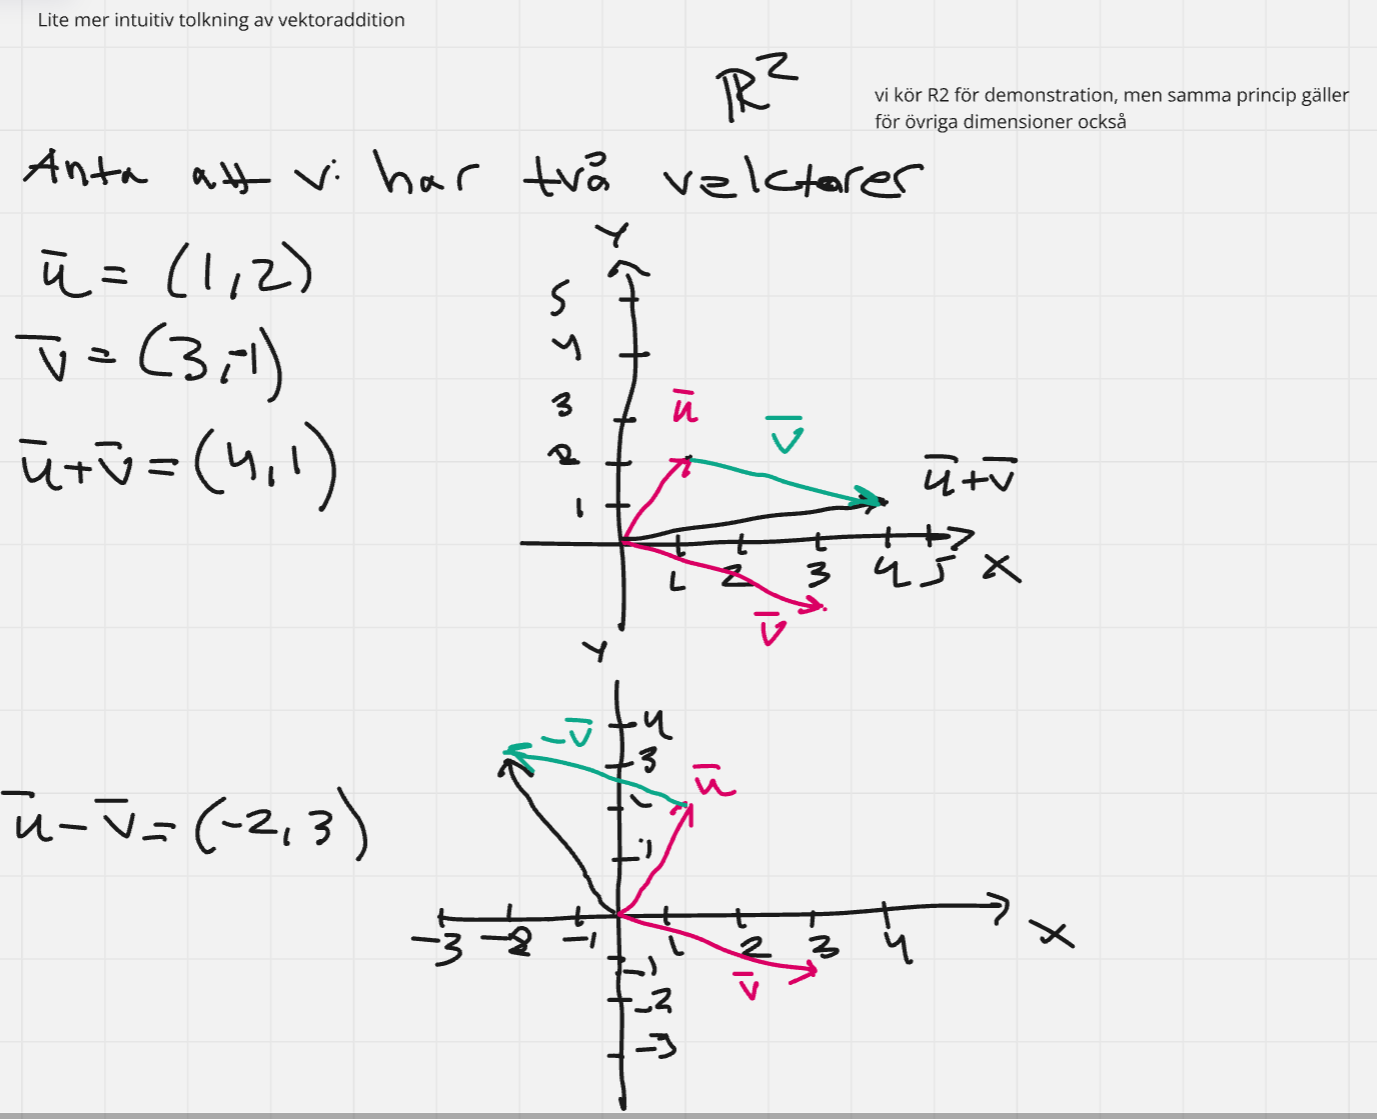 Lite mer intuitiv tolkning av vektoraddition
R²
vi kör R2 för demonstration, men samma princip gäller
för övriga dimensioner också
Anta att vi har två vektorer
u̅ = (1,2)
v̅ = (3,-1)
u̅+v̅ = (4,1)
Y
5
4
3
2
1
u̅
v̅
u̅+v̅
1 2 3 4 5 X
v̅
Y
4
3
2
1
-v̅
u̅
u̅-v̅ = (-2,3)
-3 -2 -1 1 2 3 4 X
-1
-2
-3
v̅